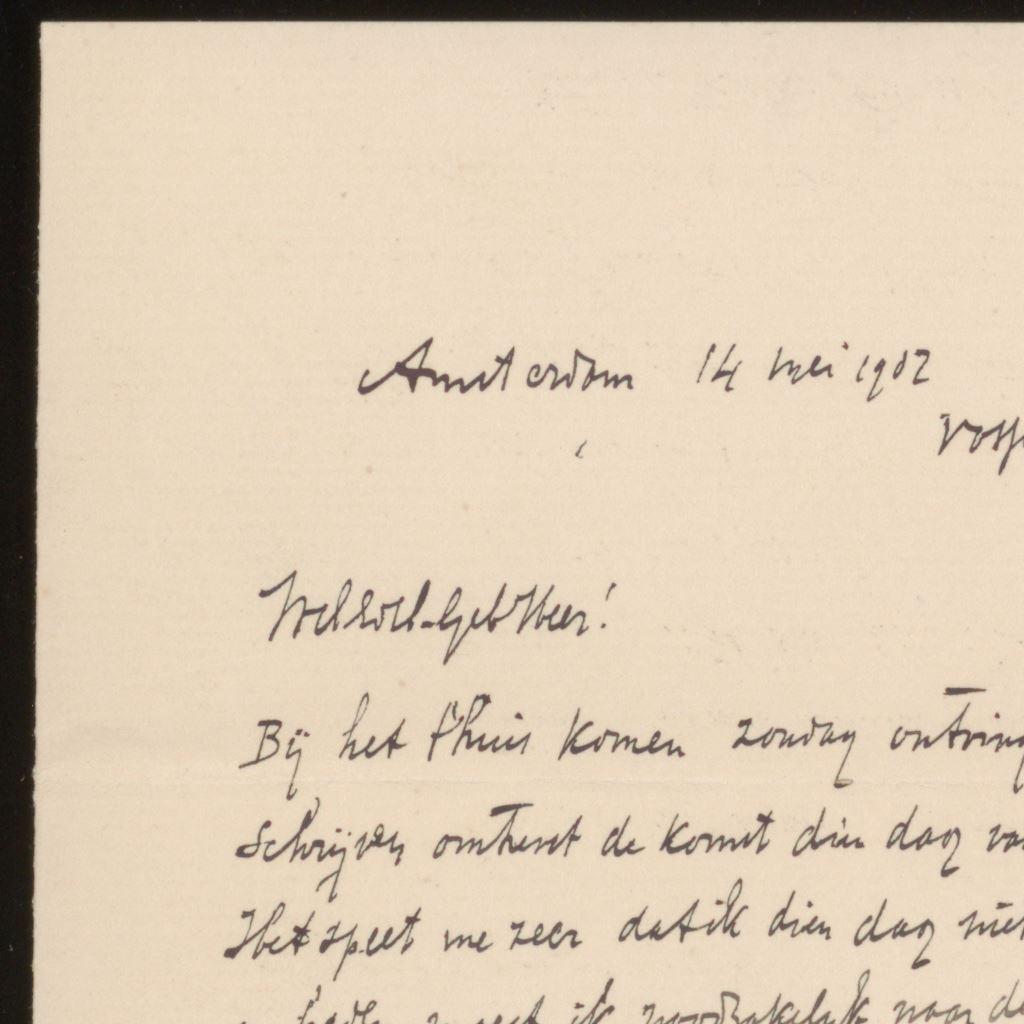 Amsterdam 14 mei 1902
WelEdel-Geb Heer!
Bij het t'huis komen zondag ontving
schrijven omtrent de komst dien dag
Het speet me zeer dat ik dien dag niet
ik noodzakelijk naar de